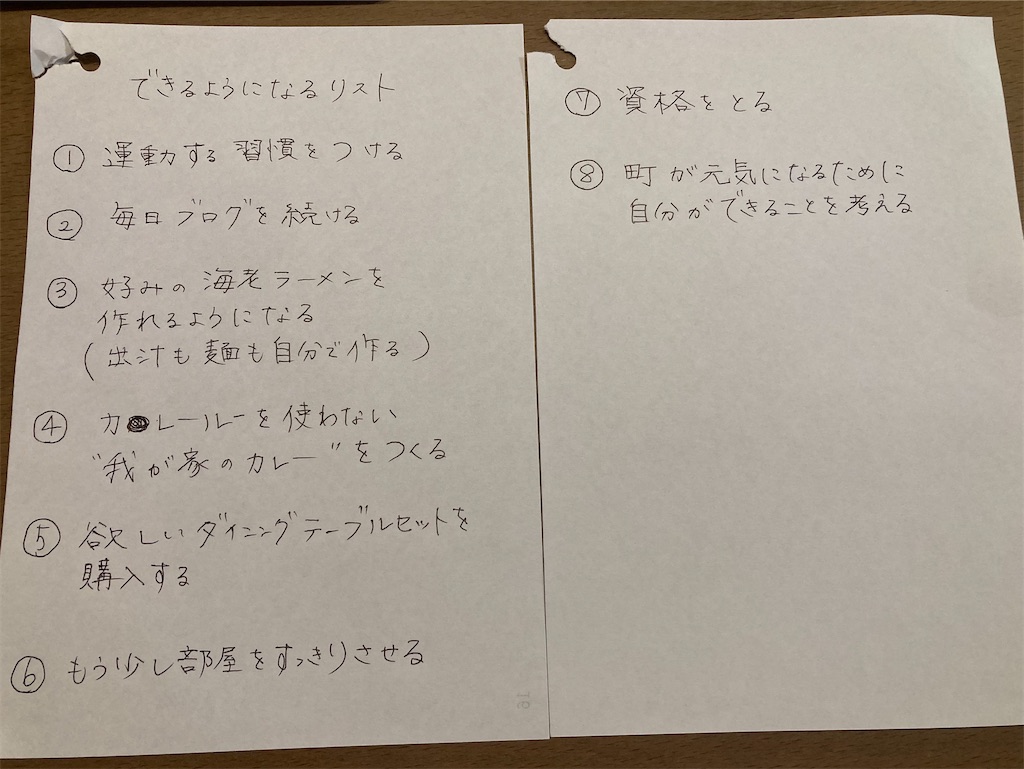 できるようになるリスト
① 運動する習慣をつける
② 毎日ブログを続ける
③ 好みの海老ラーメンを
作れるようになる
(出汁も麺も自分で作る)
④ カレールーを使わない
"我が家のカレー"をつくる
⑤ 欲しいダイニングテーブルセットを
購入する
⑥ もう少し部屋をすっきりさせる
⑦ 資格をとる
⑧ 町が元気になるために
自分ができることを考える